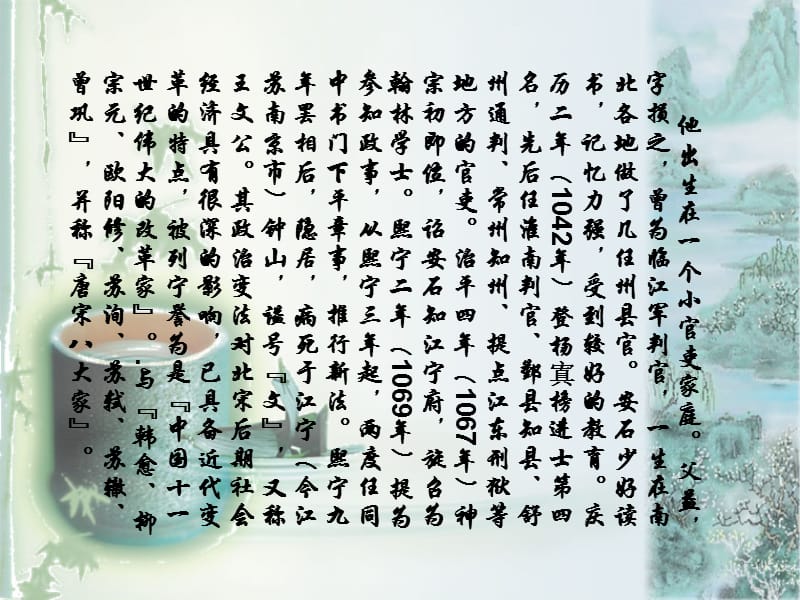 他出生在一个小官吏家庭。父益，
字损之，曾为临江军判官，一生在南
北各地做了几任州县官。安石少好读
书，记忆力强，受到较好的教育。庆
历二年（1042年）登杨寘榜进士第四
名，先后任淮南判官、鄞县知县、舒
州通判、常州知州、提点江东刑狱等
地方的官吏。治平四年（1067年）神
宗初即位，诏安石知江宁府，旋召为
翰林学士。熙宁二年（1069年）提为
参知政事，从熙宁三年起，两度任同
中书门下平章事，推行新法。熙宁九
年罢相后，隐居，病死于江宁（今江
苏南京市）钟山，谥号『文』，又称
王文公。其政治变法对北宋后期社会
经济具有很深的影响，已具备近代变
革的特点，被列宁誉为是『中国十一
世纪伟大的改革家』。.与『韩愈、柳
宗元、欧阳修、苏洵、苏轼、苏辙、
曾巩』，并称『唐宋八大家』。